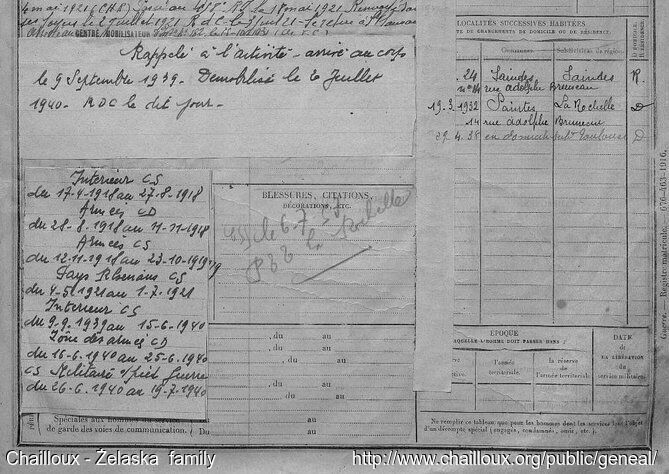 4 mai 1921
CENTRE MOBILISATEUR
Rappelé à l'activité - arrivé au corps
le 9 Septembre 1939. Démobilisé le 20 Juillet
1940. RDC le dit jour.
Intérieur CS
du 17-4-1918 au 27-8-1918
Armées CD
du 28-8-1918 au 11-11-1918
Armées CS
du 12-11-1918 au 23-10-1919
Pays Rhénans CS
du 4-5-1921 au 1-7-1921
Interieur CS
du 9-9-1939 au 15-6-1940
Zône des armées CD
du 16-6-1940 au 25-6-1940
CS Militaire s/pied Guerre
du 26-6-1940 au 19-7-1940
BLESSURES, CITATIONS,
DÉCORATIONS, ETC.
le 6-7
La Rochelle
, du au
, du au
, du au
, du au
, du au
, du au
Spéciales aux hommes du service
de garde des voies de communication. (Du au
LOCALITÉS SUCCESSIVES HABITÉES
DE CHANGEMENTS DE DOMICILE OU DE RÉSIDENCE.
Communes. Subdivisions de région.
24 Saintes Saintes R
rue adolphe Bruneau
19.3.1932 Saintes La Rochelle D
14 rue adolphe Bruneau
4.38 Toulouse D
ÉPOQUE
À LAQUELLE L'HOMME DOIT PASSER DANS :
l'armée territoriale.
la réserve de l'armée territoriale.
DATE
de
LA LIBÉRATION
du
service militaire.
Ne remplir ce tableau que pour les hommes dont les services font l'objet
d'un décompte spécial (engagés, condamnés, omis, etc.).
Guerre. Registre matricule.
Chailloux - Želaska family
http://www.chailloux.org/public/geneal/